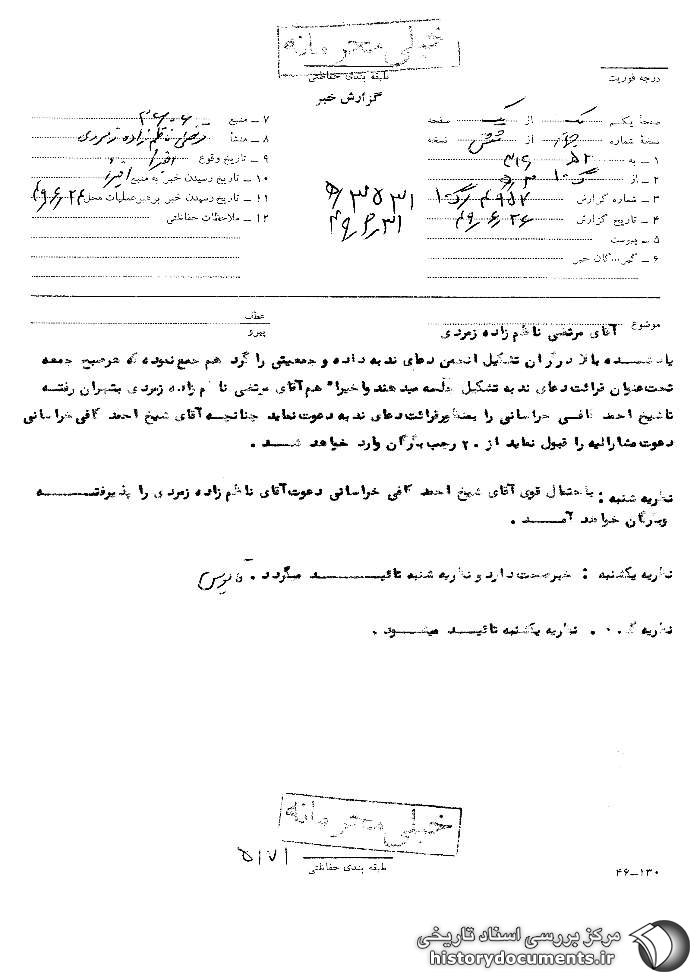 خیلی محرمانه
طبقه بندی حفاظتی
درجه فوریت
گزارش خبر
صفحه یکم یک از یک صفحه
نسخه شماره چهار از شش نسخه
۱ ــ به ۳۴۱ ۵۲
۲ ــ از
۳ ــ شماره گزارش
۴ ــ تاریخ گزارش ۴۹٫۶٫۲۶
۵ ــ پیوست
۶ ــ گیرندگان خبر
۷ ــ منبع
۸ ــ منشأ مرتضی ناظم زاده زمردی
۹ ــ تاریخ وقوع اخیرا
۱۰ ــ تاریخ رسیدن خبر به منبع اخیرا
۱۱ ــ تاریخ رسیدن خبر برهبر عملیات محل ۴۹٫۶٫۲۴
۱۲ ــ ملاحظات حفاظتی
۴۹٫۶٫۳۱
موضوع آقای مرتضی ناظم زاده زمردی
عطف
پیرو
یادشده بالا در گرگان تشکیل انجمن دعای ندبه داده و جمعیتی را گرد هم جمع نموده که هرصبح جمعه
تحت عنوان قرائت دعای ندبه تشکیل جلسه میدهند واخیرا" هم آقای مرتضی ناظم زاده زمردی بتهران رفته
تاشیخ احمد کافی خراسانی را بمنظور قرائت دعای ندبه دعوت نماید چنانچه آقای شیخ احمد کافی خراسانی
دعوت مشارالیه را قبول نماید از ۲۰ رجب بگرگان وارد خواهد شد .
نظریه شنبه : باحتمال قوی آقای شیخ احمد کافی خراسانی دعوت آقای ناظم زاده زمردی را پذیرفته
وبگرگان خواهد آمد .
نظریه یکشنبه : خبر صحت دارد و نظریه شنبه تائید میگردد .
نظریه گ . . نظریه یکشنبه تائید میشود .
خیلی محرمانه
طبقه بندی حفاظتی
۵۱۷۱
۴۶ــ۱۳۰
مرکز بررسی اسناد تاریخی
historydocuments.ir